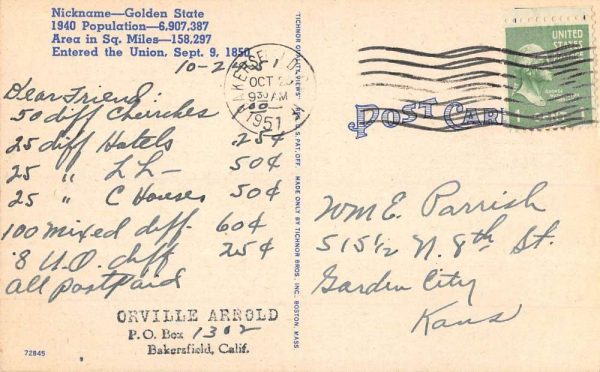 Nickname—Golden State
1940 Population—6,907,387
Area in Sq. Miles—158,297
Entered the Union, Sept. 9, 1850
10-2-1951
Dear Friend:
50 diff Churches
25 diff Hotels .25¢
25 " LL- 50¢
25 " C Houses 50¢
100 mixed diff. 60¢
8 U.O. diff 25¢
all postpaid
ORVILLE ARNOLD
P.O. Box 1302
Bakersfield, Calif.
72845
TICHNOR QUALITY VIEWS REG. U.S. PAT. OFF. MADE ONLY BY TICHNOR BROS. INC., BOSTON, MASS.
OCT 2
9 30 AM
1951
POST CARD
UNITED
STATES
POSTAGE
Wm E. Parrish
515½ N. 8th St.
Garden City
Kans